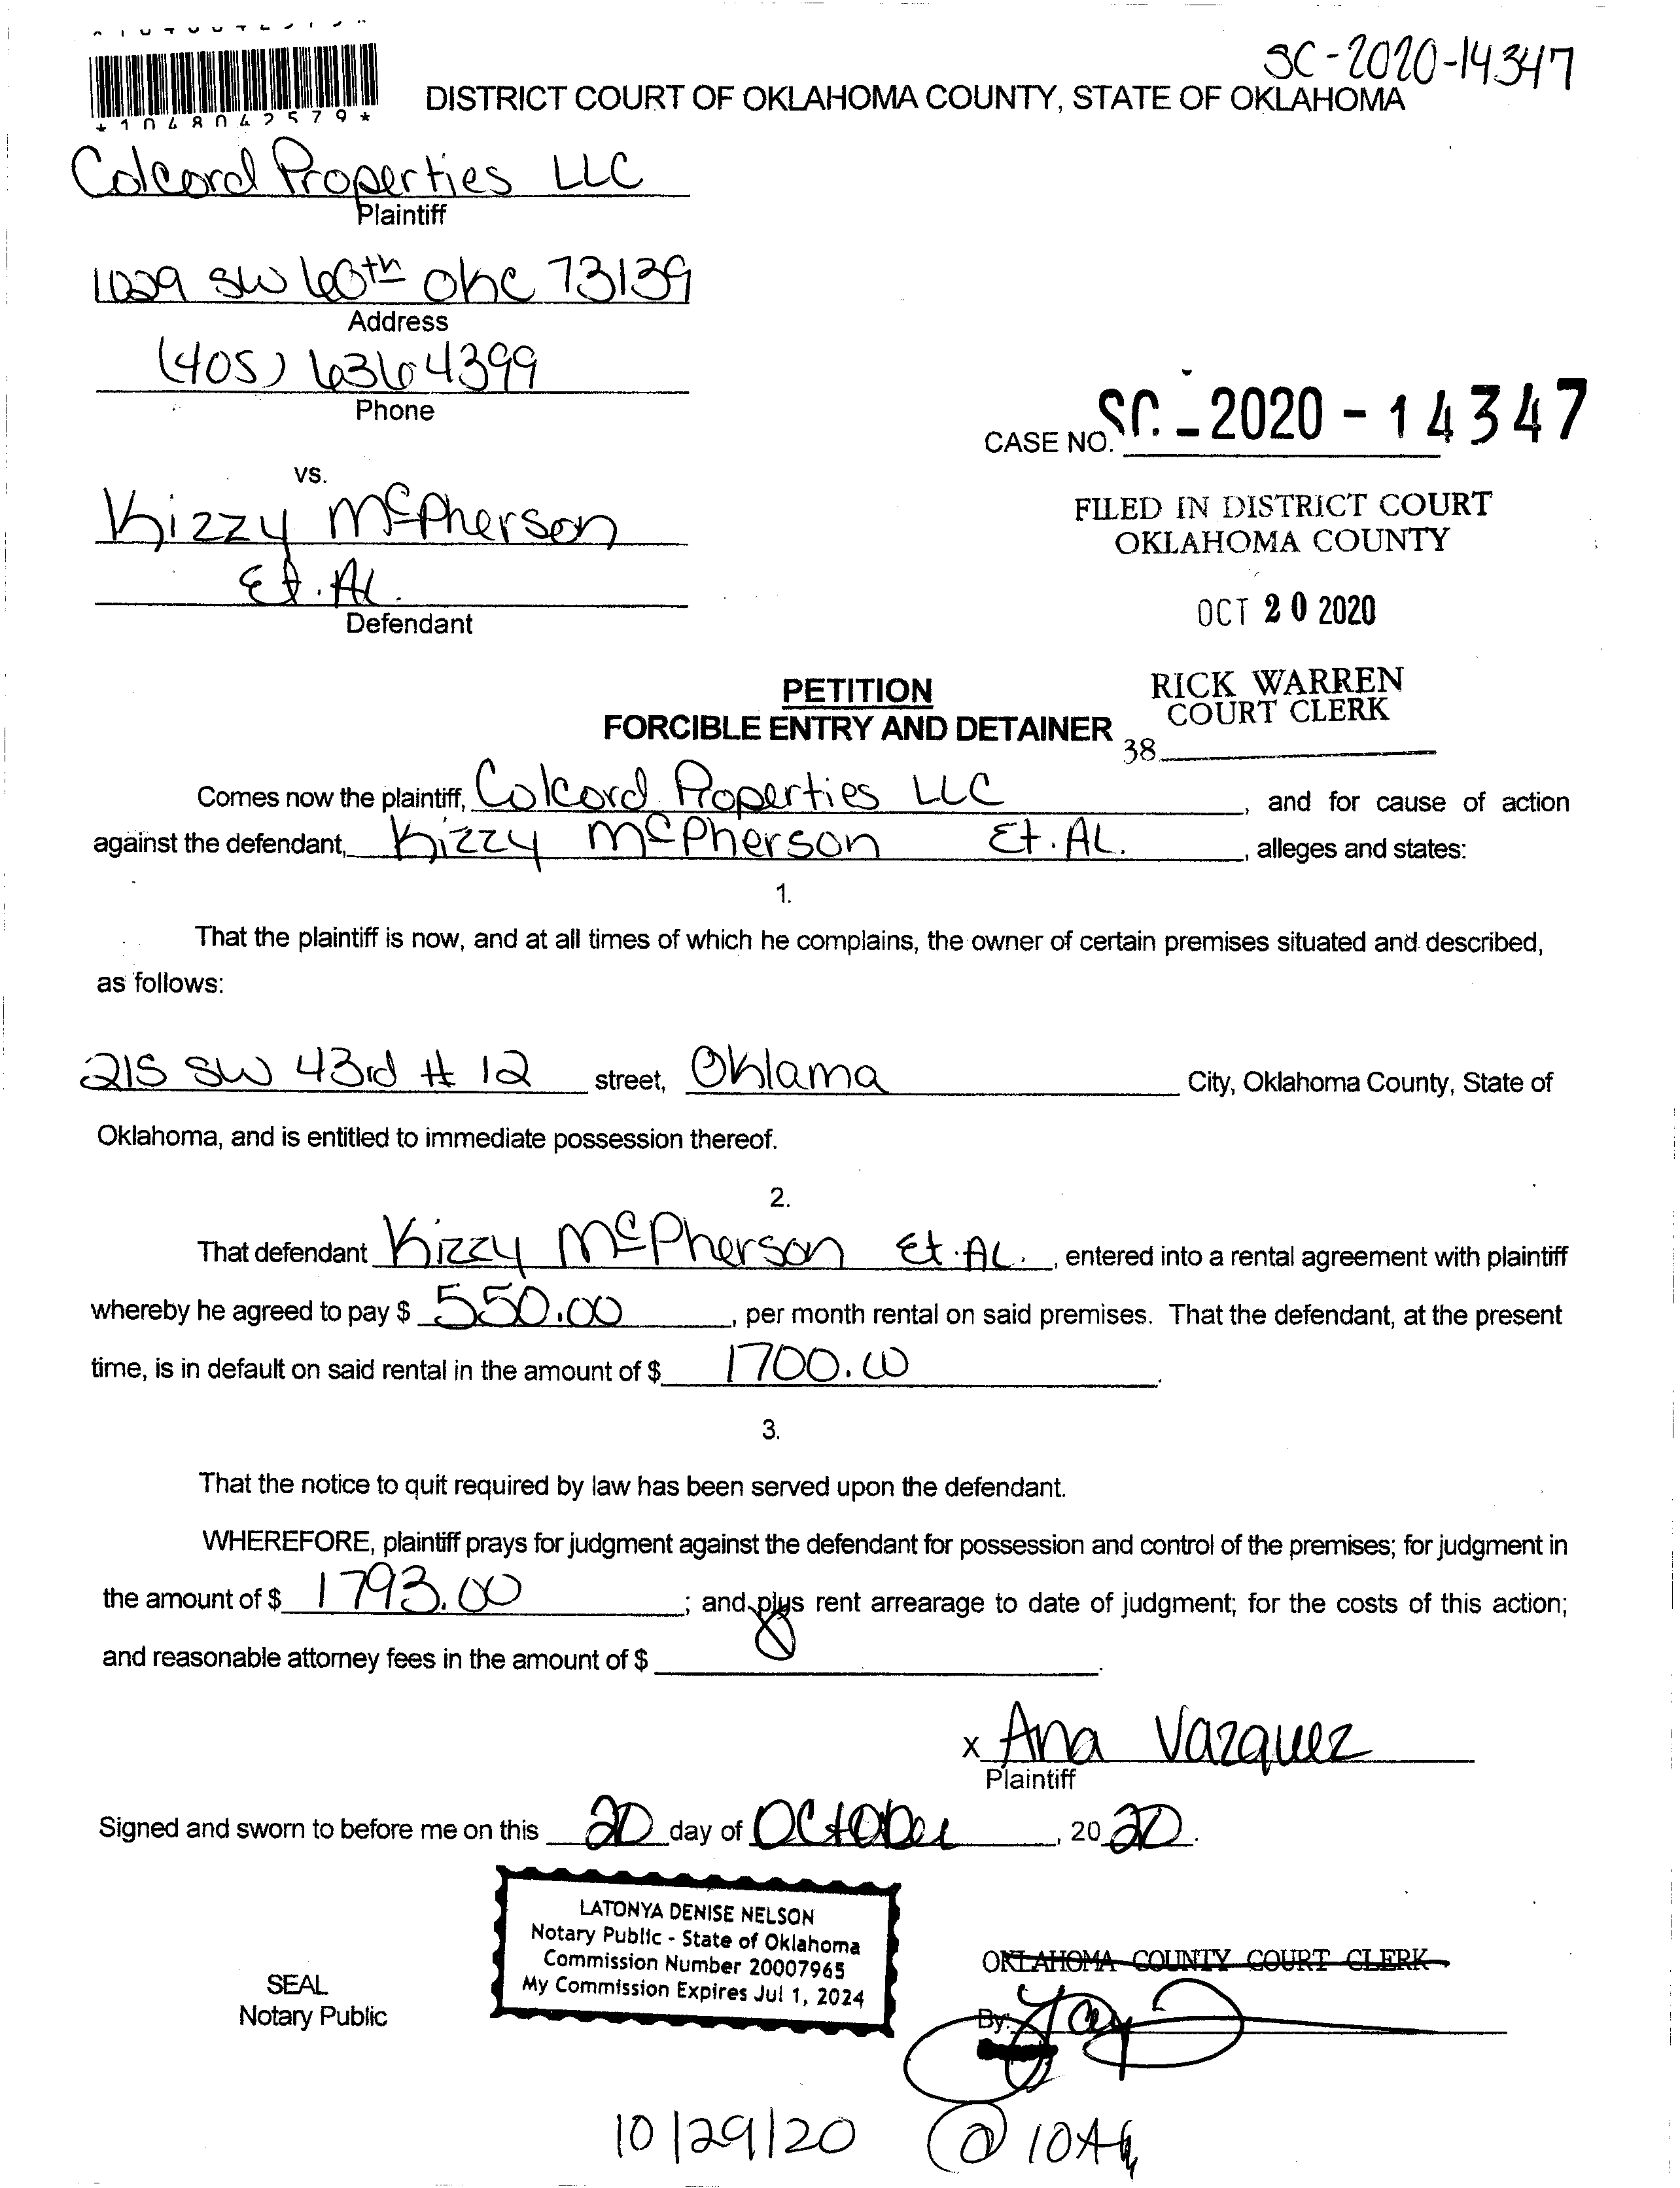 SC-2020-14347
*1048042579*
DISTRICT COURT OF OKLAHOMA COUNTY, STATE OF OKLAHOMA
Colcord Properties LLC
Plaintiff
1029 SW 60th OKC 73139
Address
(405) 6364399
Phone
CASE NO. SC - 2020 - 14347
vs.
Kizzy McPherson
Et. Al.
Defendant
FILED IN DISTRICT COURT
OKLAHOMA COUNTY
OCT 20 2020
RICK WARREN
COURT CLERK
38
PETITION
FORCIBLE ENTRY AND DETAINER
Comes now the plaintiff, Colcord Properties LLC, and for cause of action
against the defendant, Kizzy McPherson Et. AL., alleges and states:
1.
That the plaintiff is now, and at all times of which he complains, the owner of certain premises situated and described,
as follows:
215 SW 43rd # 12 street, Oklama City, Oklahoma County, State of
Oklahoma, and is entitled to immediate possession thereof.
2.
That defendant Kizzy McPherson Et. AL., entered into a rental agreement with plaintiff
whereby he agreed to pay $ 550.00, per month rental on said premises. That the defendant, at the present
time, is in default on said rental in the amount of $ 1700.00.
3.
That the notice to quit required by law has been served upon the defendant.
WHEREFORE, plaintiff prays for judgment against the defendant for possession and control of the premises; for judgment in
the amount of $ 1793.00; and plus rent arrearage to date of judgment; for the costs of this action;
and reasonable attorney fees in the amount of $
x Ana Vazquez
Plaintiff
Signed and sworn to before me on this 20 day of October, 20 20.
LATONYA DENISE NELSON
Notary Public - State of Oklahoma
Commission Number 20007965
My Commission Expires Jul 1, 2024
SEAL
Notary Public
OKLAHOMA COUNTY COURT CLERK
By:
10/29/20 @ 10A